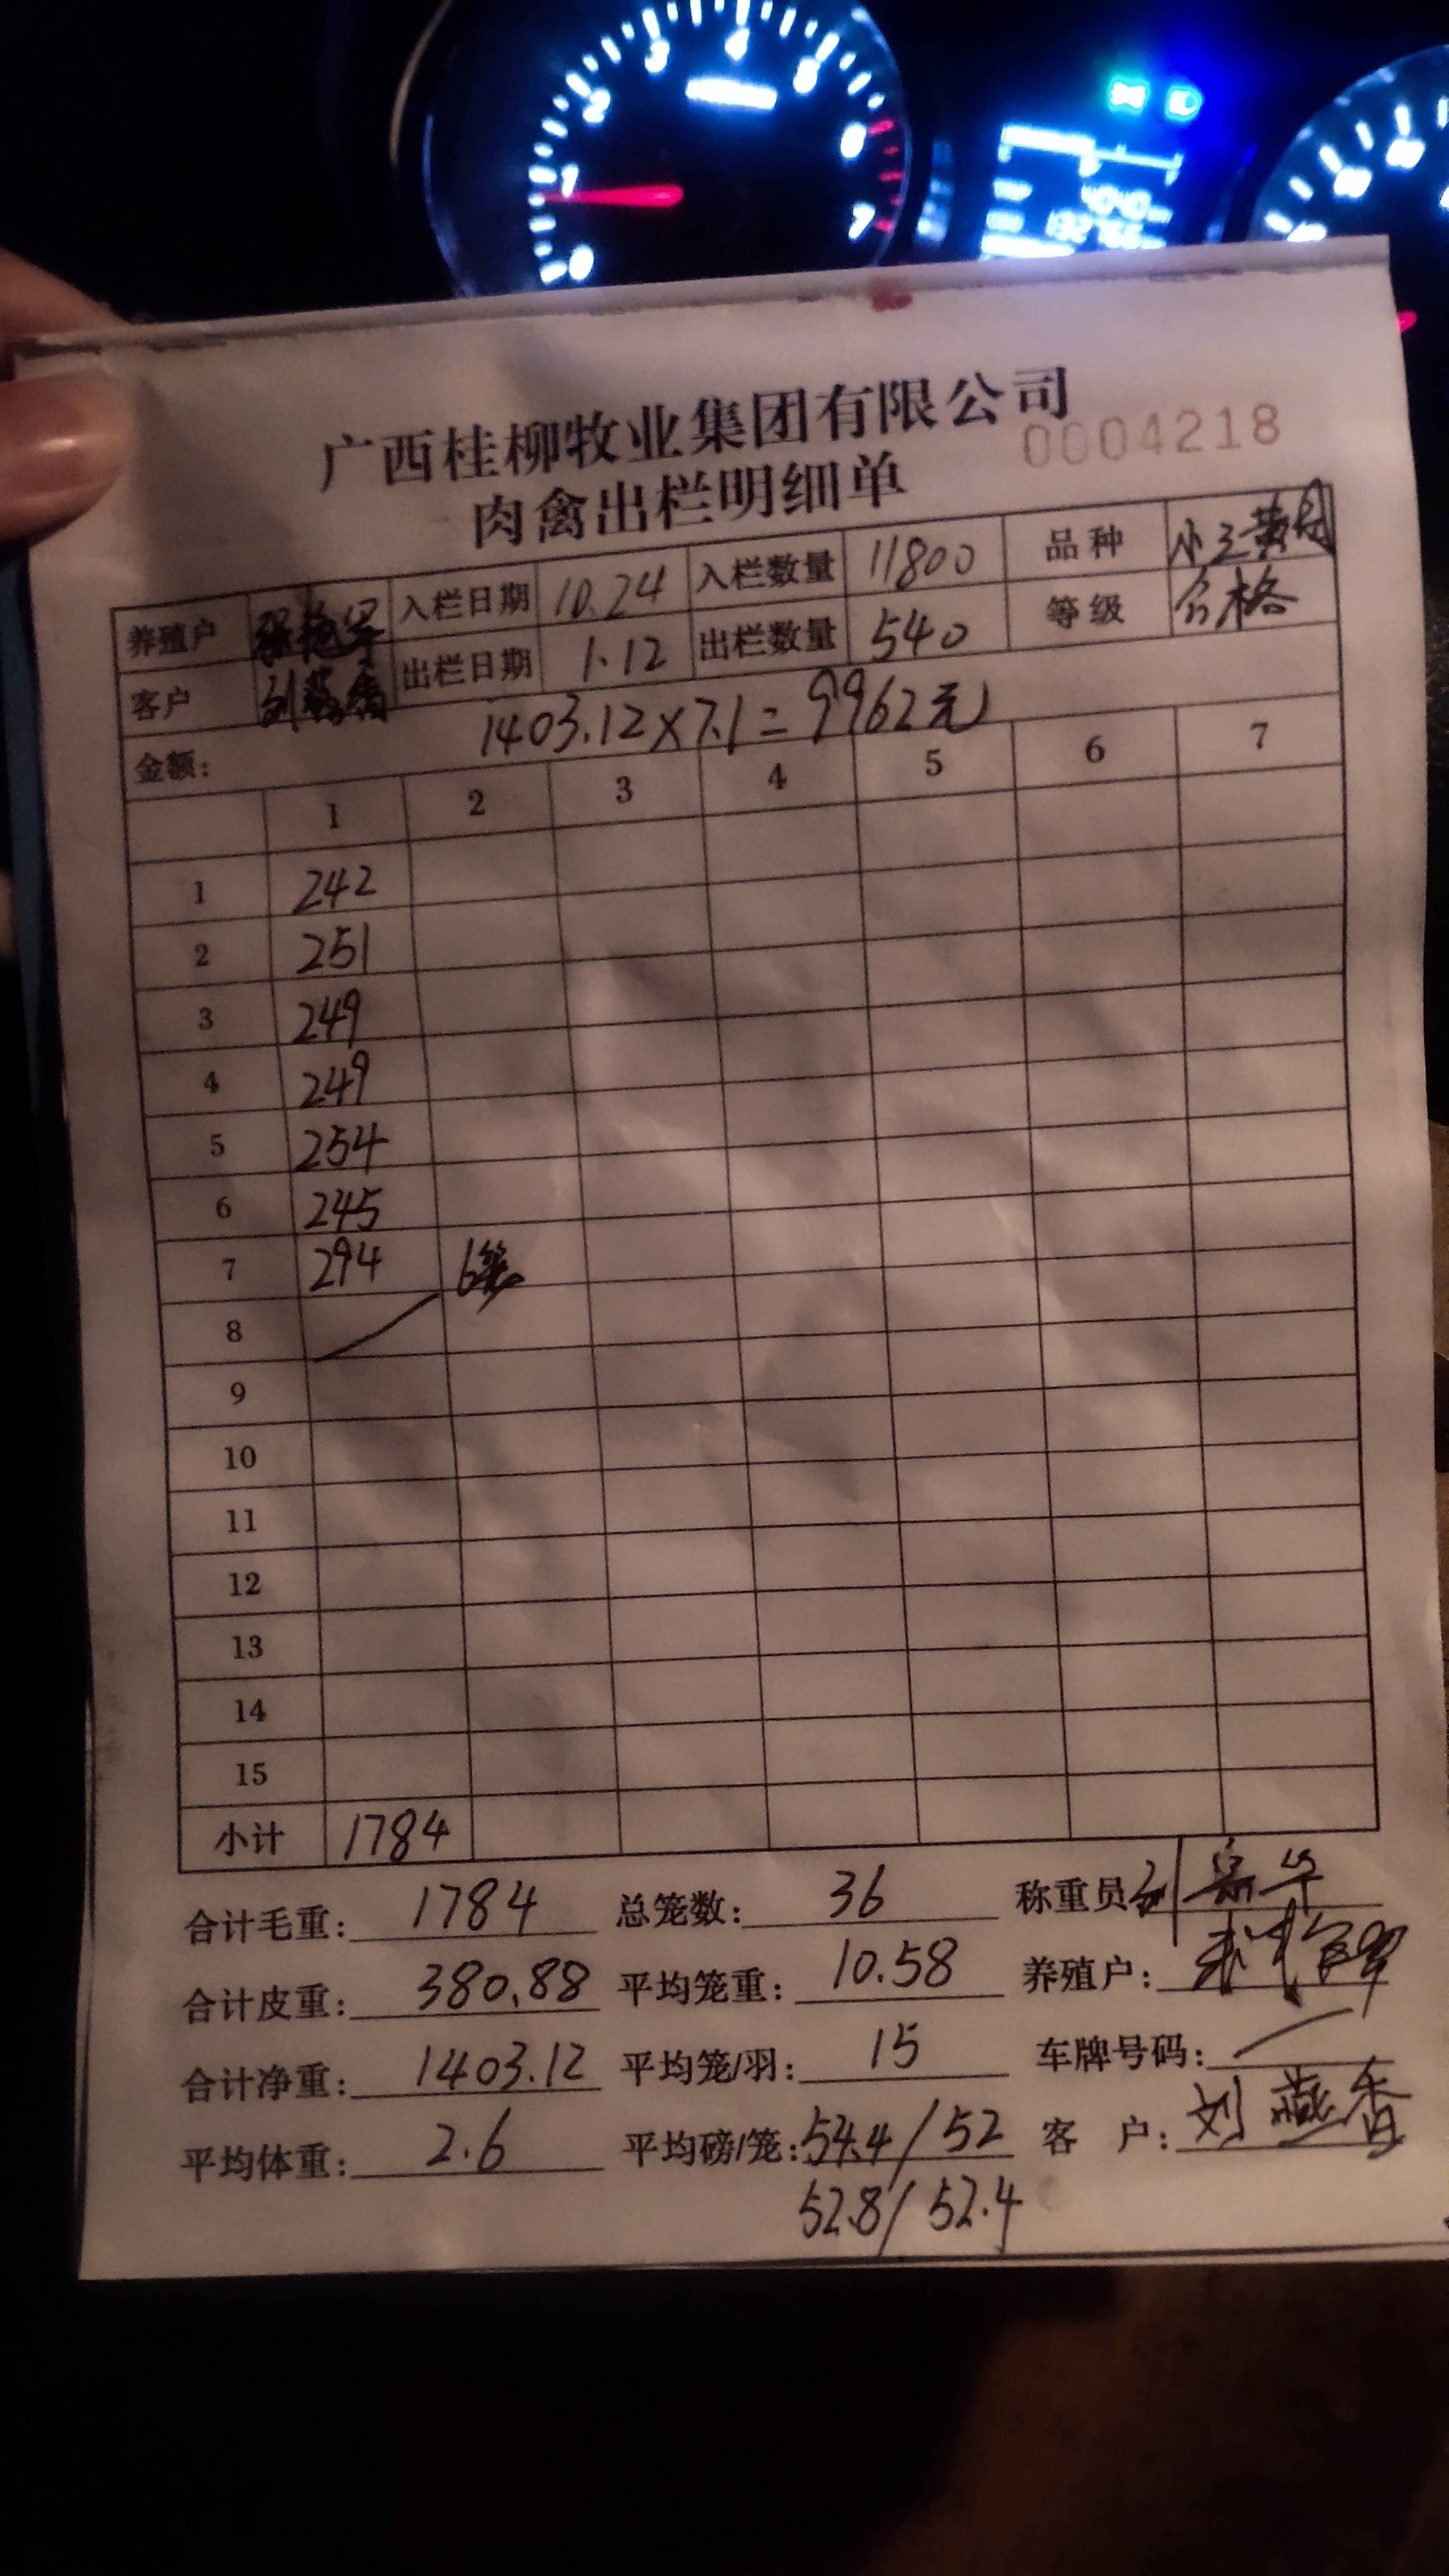 2 3 4 5 6
1 7
0
广西桂柳牧业集团有限公司
0004218
肉禽出栏明细单
养殖户 入栏日期 10.24 入栏数量 11800 品种
客户 出栏日期 1.12 出栏数量 540 等级 合格
金额: 1403.12×7.1=9962元
1 2 3 4 5 6 7
1 242
2 251
3 249
4 249
5 254
6 245
7 294 6笼
8
9
10
11
12
13
14
15
小计 1784
合计毛重: 1784 总笼数: 36 称重员
合计皮重: 380.88 平均笼重: 10.58 养殖户:
合计净重: 1403.12 平均笼/羽: 15 车牌号码:
平均体重: 2.6 平均磅/笼: 54.4/52 客 户: 刘燕香
52.8/52.4